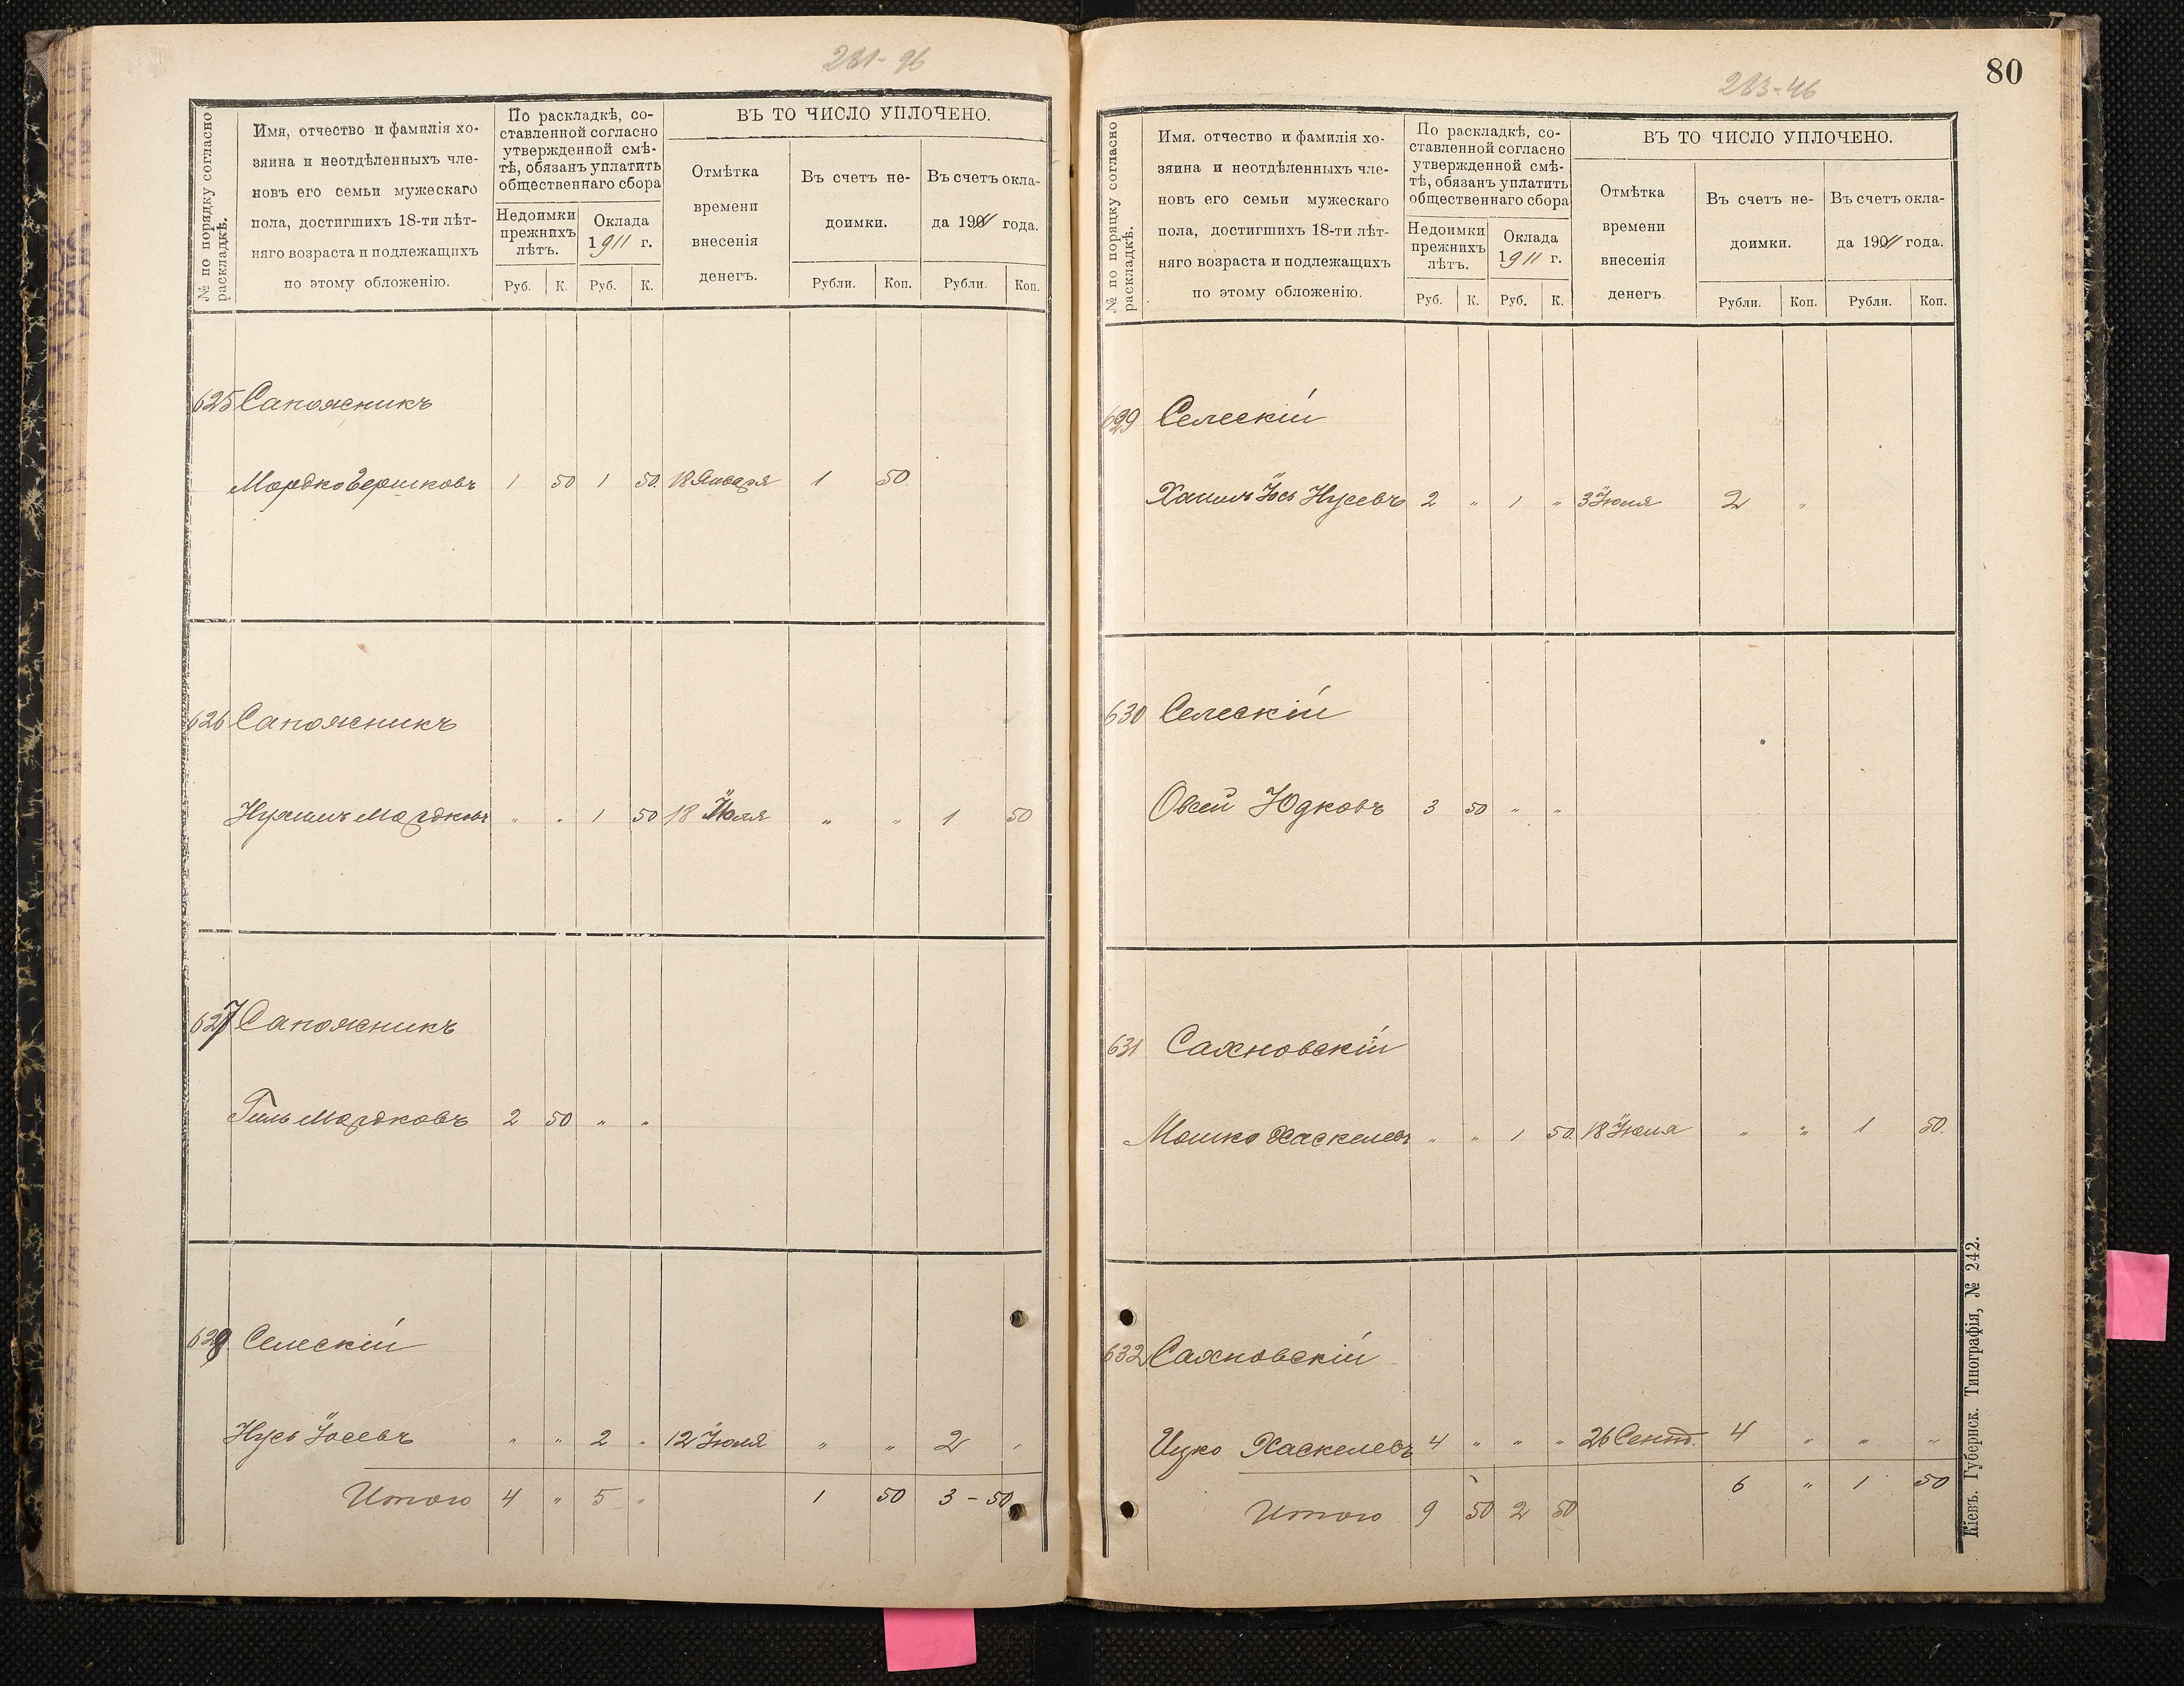 281-96
№ по порядку согласно раскладкѣ.
Имя, отчество и фамилія хо-
зяина и неотдѣленныхъ чле-
новъ его семьи мужескаго
пола, достигшихъ 18-ти лѣт-
няго возраста и подлежащихъ
по этому обложенію.
По раскладкѣ, со-
ставленной согласно
утвержденной смѣ-
тѣ, обязанъ уплатить
общественнаго сбора
Недоимки прежнихъ лѣтъ.
Оклада 1911 г.
Руб. К. Руб. К.
ВЪ ТО ЧИСЛО УПЛОЧЕНО.
Отмѣтка
времени
внесенія
денегъ.
Въ счетъ не-
доимки.
Въ счетъ окла-
да 1911 года.
Рубли. Коп. Рубли. Коп.
625 Сапожникъ
Мордко Бершковъ 1 50 1 50. 18 Января 1 50.
626 Сапожникъ
Нухимъ Мордковъ " " 1 50 18 Июля " " 1 50
627 Сапожникъ
Гиль Мордковъ 2 50 " "
628 Селескій
Нусь Іосевъ " " 2 " 12 Іюля " " 2 "
Итого 4 " 5 " 1 50 3 - 50
80
283-46
№ по порядку согласно раскладкѣ.
Имя, отчество и фамилія хо-
зяина и неотдѣленныхъ чле-
новъ его семьи мужескаго
пола, достигшихъ 18-ти лѣт-
няго возраста и подлежащихъ
по этому обложенію.
По раскладкѣ, со-
ставленной согласно
утвержденной смѣ-
тѣ, обязанъ уплатить
общественнаго сбора
Недоимки прежнихъ лѣтъ.
Оклада 1911 г.
Руб. К. Руб. К.
ВЪ ТО ЧИСЛО УПЛОЧЕНО.
Отмѣтка
времени
внесенія
денегъ.
Въ счетъ не-
доимки.
Въ счетъ окла-
да 1911 года.
Рубли. Коп. Рубли. Коп.
629 Селескій
Хаимъ Іось Нусевъ 2 " 1 " 3 Іюля 2 "
630 Селескій
Овсей Юдковъ 3 50 " "
631 Сахновскій
Мошко Хаскелевъ " " 1 50. 18 Іюля " " 1 50.
632 Сахновскій
Ицко Хаскелевъ 4 " " " 26 Сент. 4 " " "
6 " 1 50
Итого 9 50 2 50
Кіевъ. Губернск. Типографія, № 242.